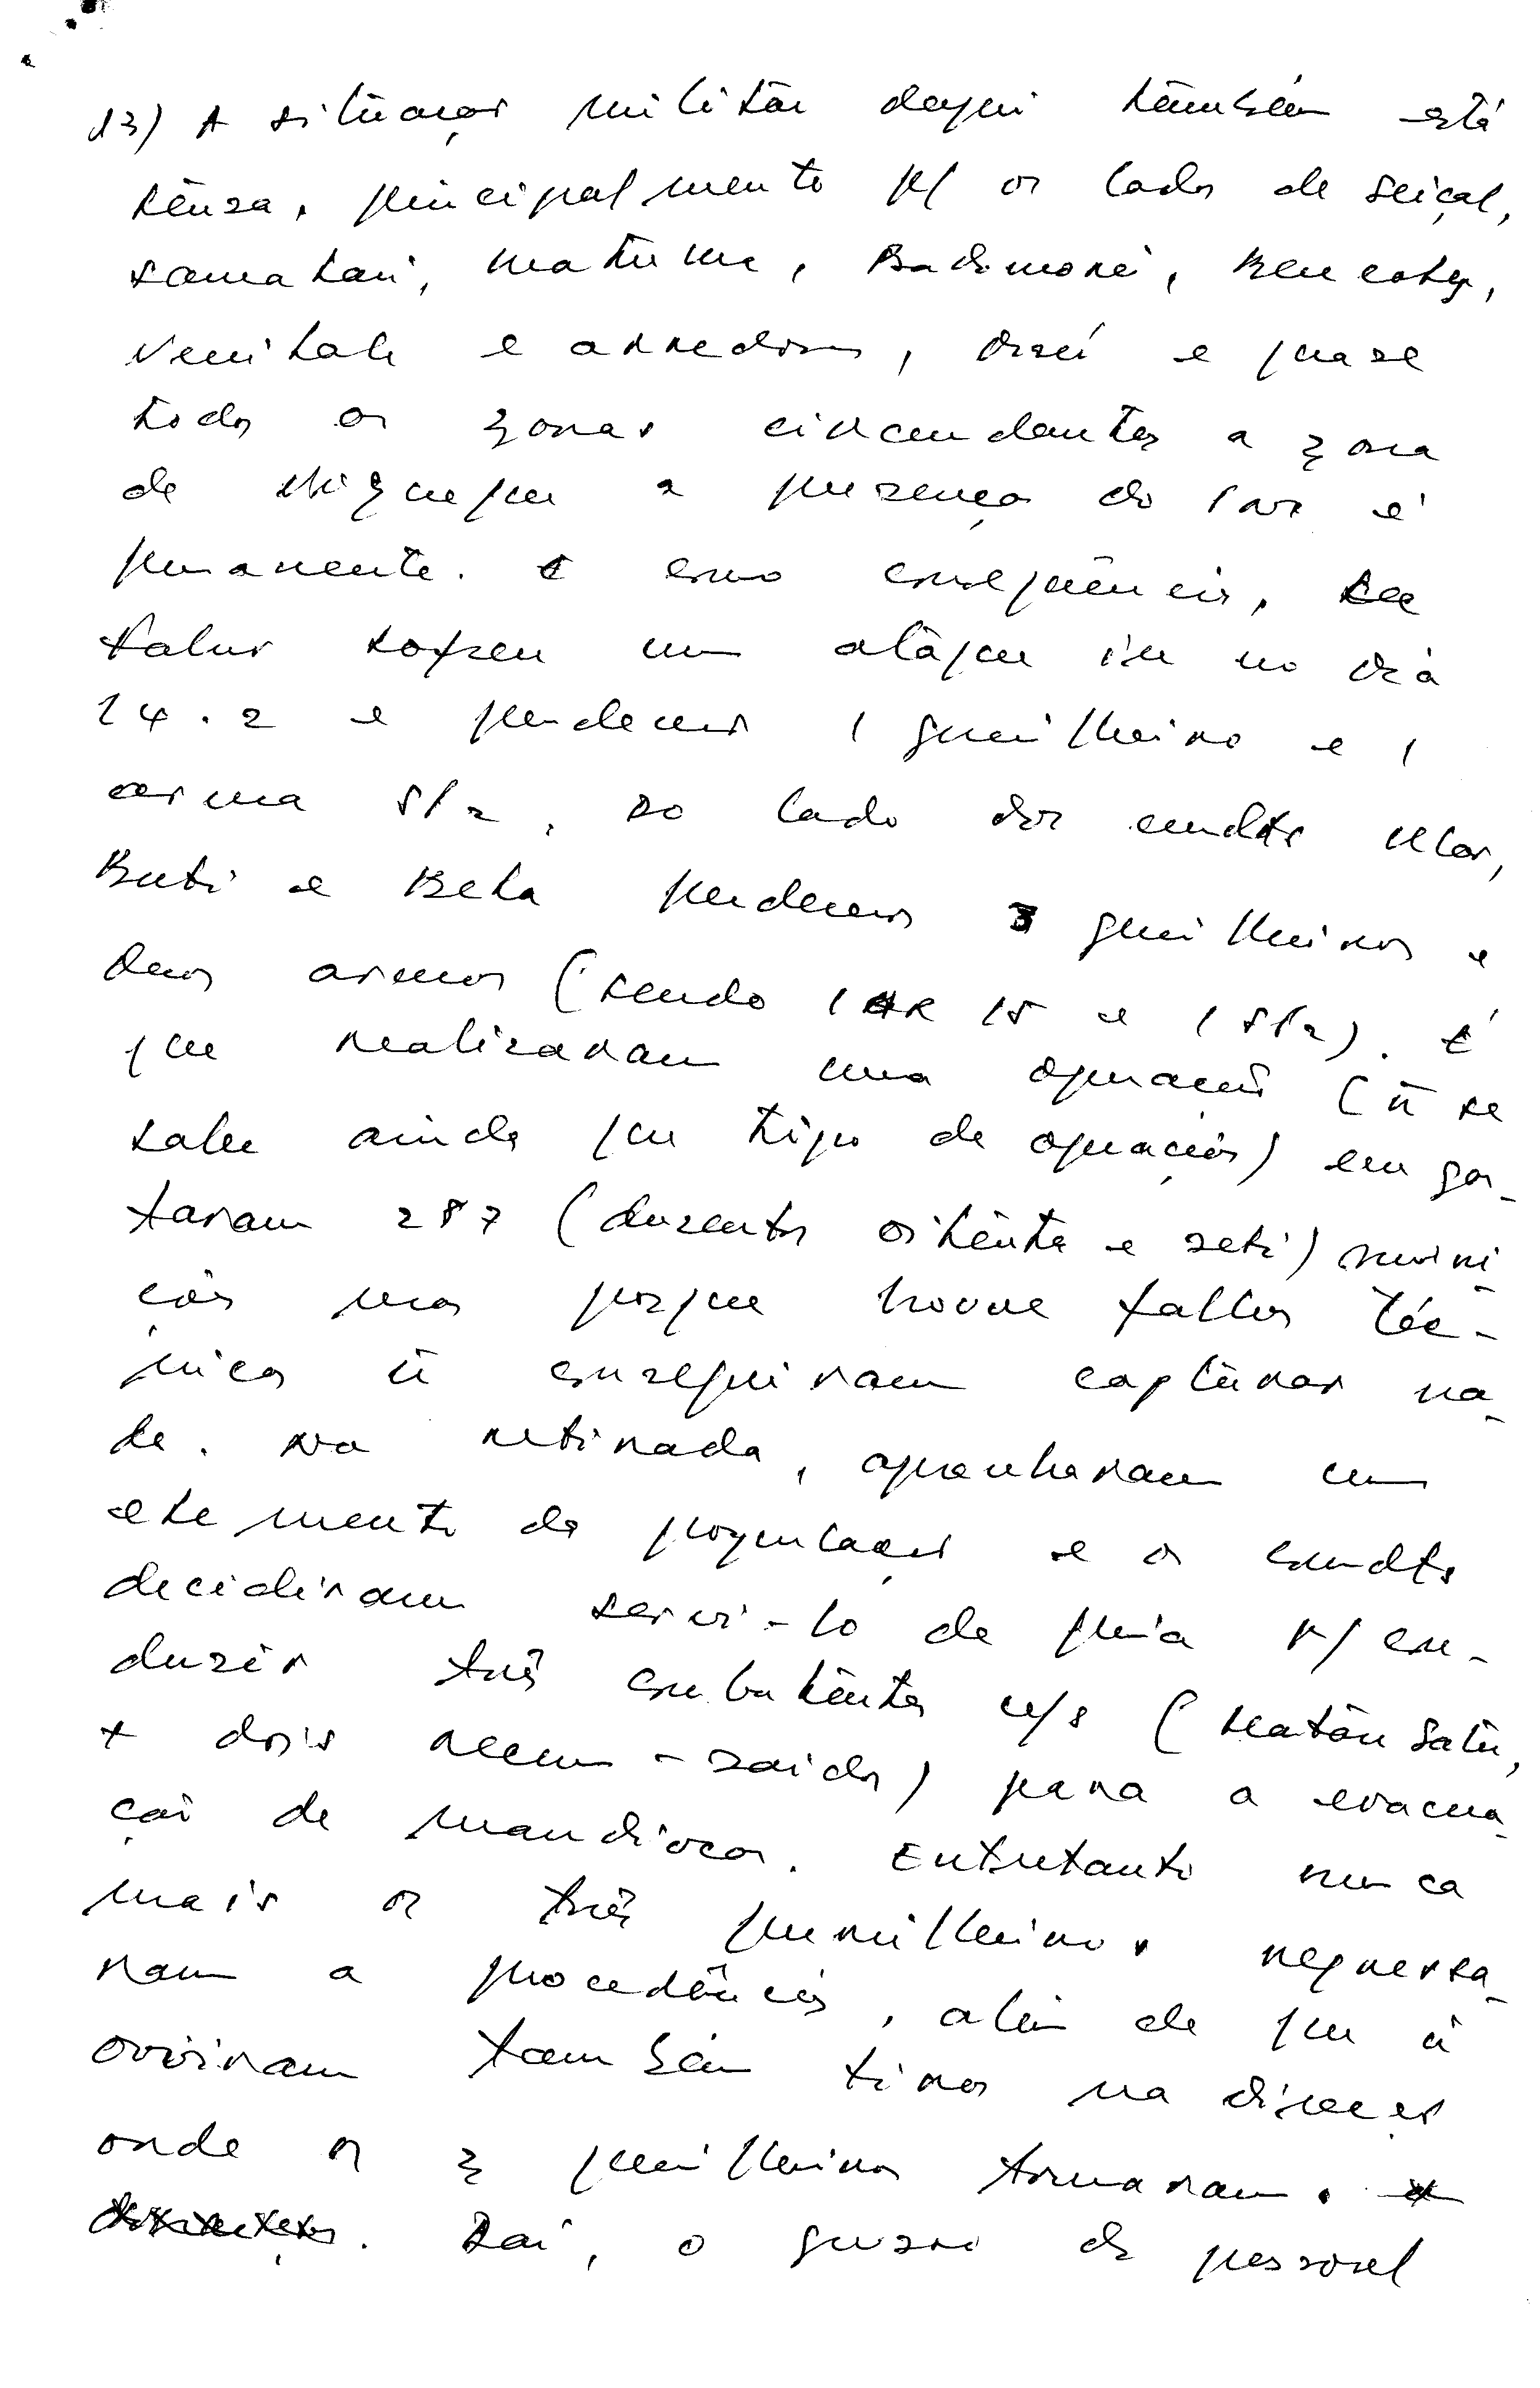 13) A situação militar daqui também está
tensa, principalmente p/ os lados de Seiçal,
Samalari, Matume, Badomori, Bercoly,
Venilale e arredores, Ossú e quase
todos os zonas circundantes a zona
de a presença do é
permanente. E como consequência,
Falur sofreu um ataque in no dia
14.2 e perdemos 1 guerrilheiro e 1
arma SP2, do lado dos cmdts Ular,
Buti e Beta perdemos 3 guerrilheiros e
duas armas (sendo 1 AR 15 e 1 SP2). É
que realizaram uma operação (ñ se
sabe ainda que tipo de operação) em gas-
taram 287 (duzentos oitenta e sete) muni-
ções mas porque houve falhas téc-
nicas ñ conseguiram capturar na-
da. Na retirada, apanharam um
elemento da população e os cmdts
decidiram servi-lo de guia p/ con-
duzir três combatentes n/s (
+ dois recem-saidos) para a evacua-
ção de mandioca. Entretanto nunca
mais os três guerrilheiros regressa-
ram a procedência, além de que ñ
ouviram também tiros na direcção
onde os 3 guerrilheiros tomaram.
Daí, o grosso do pessoal